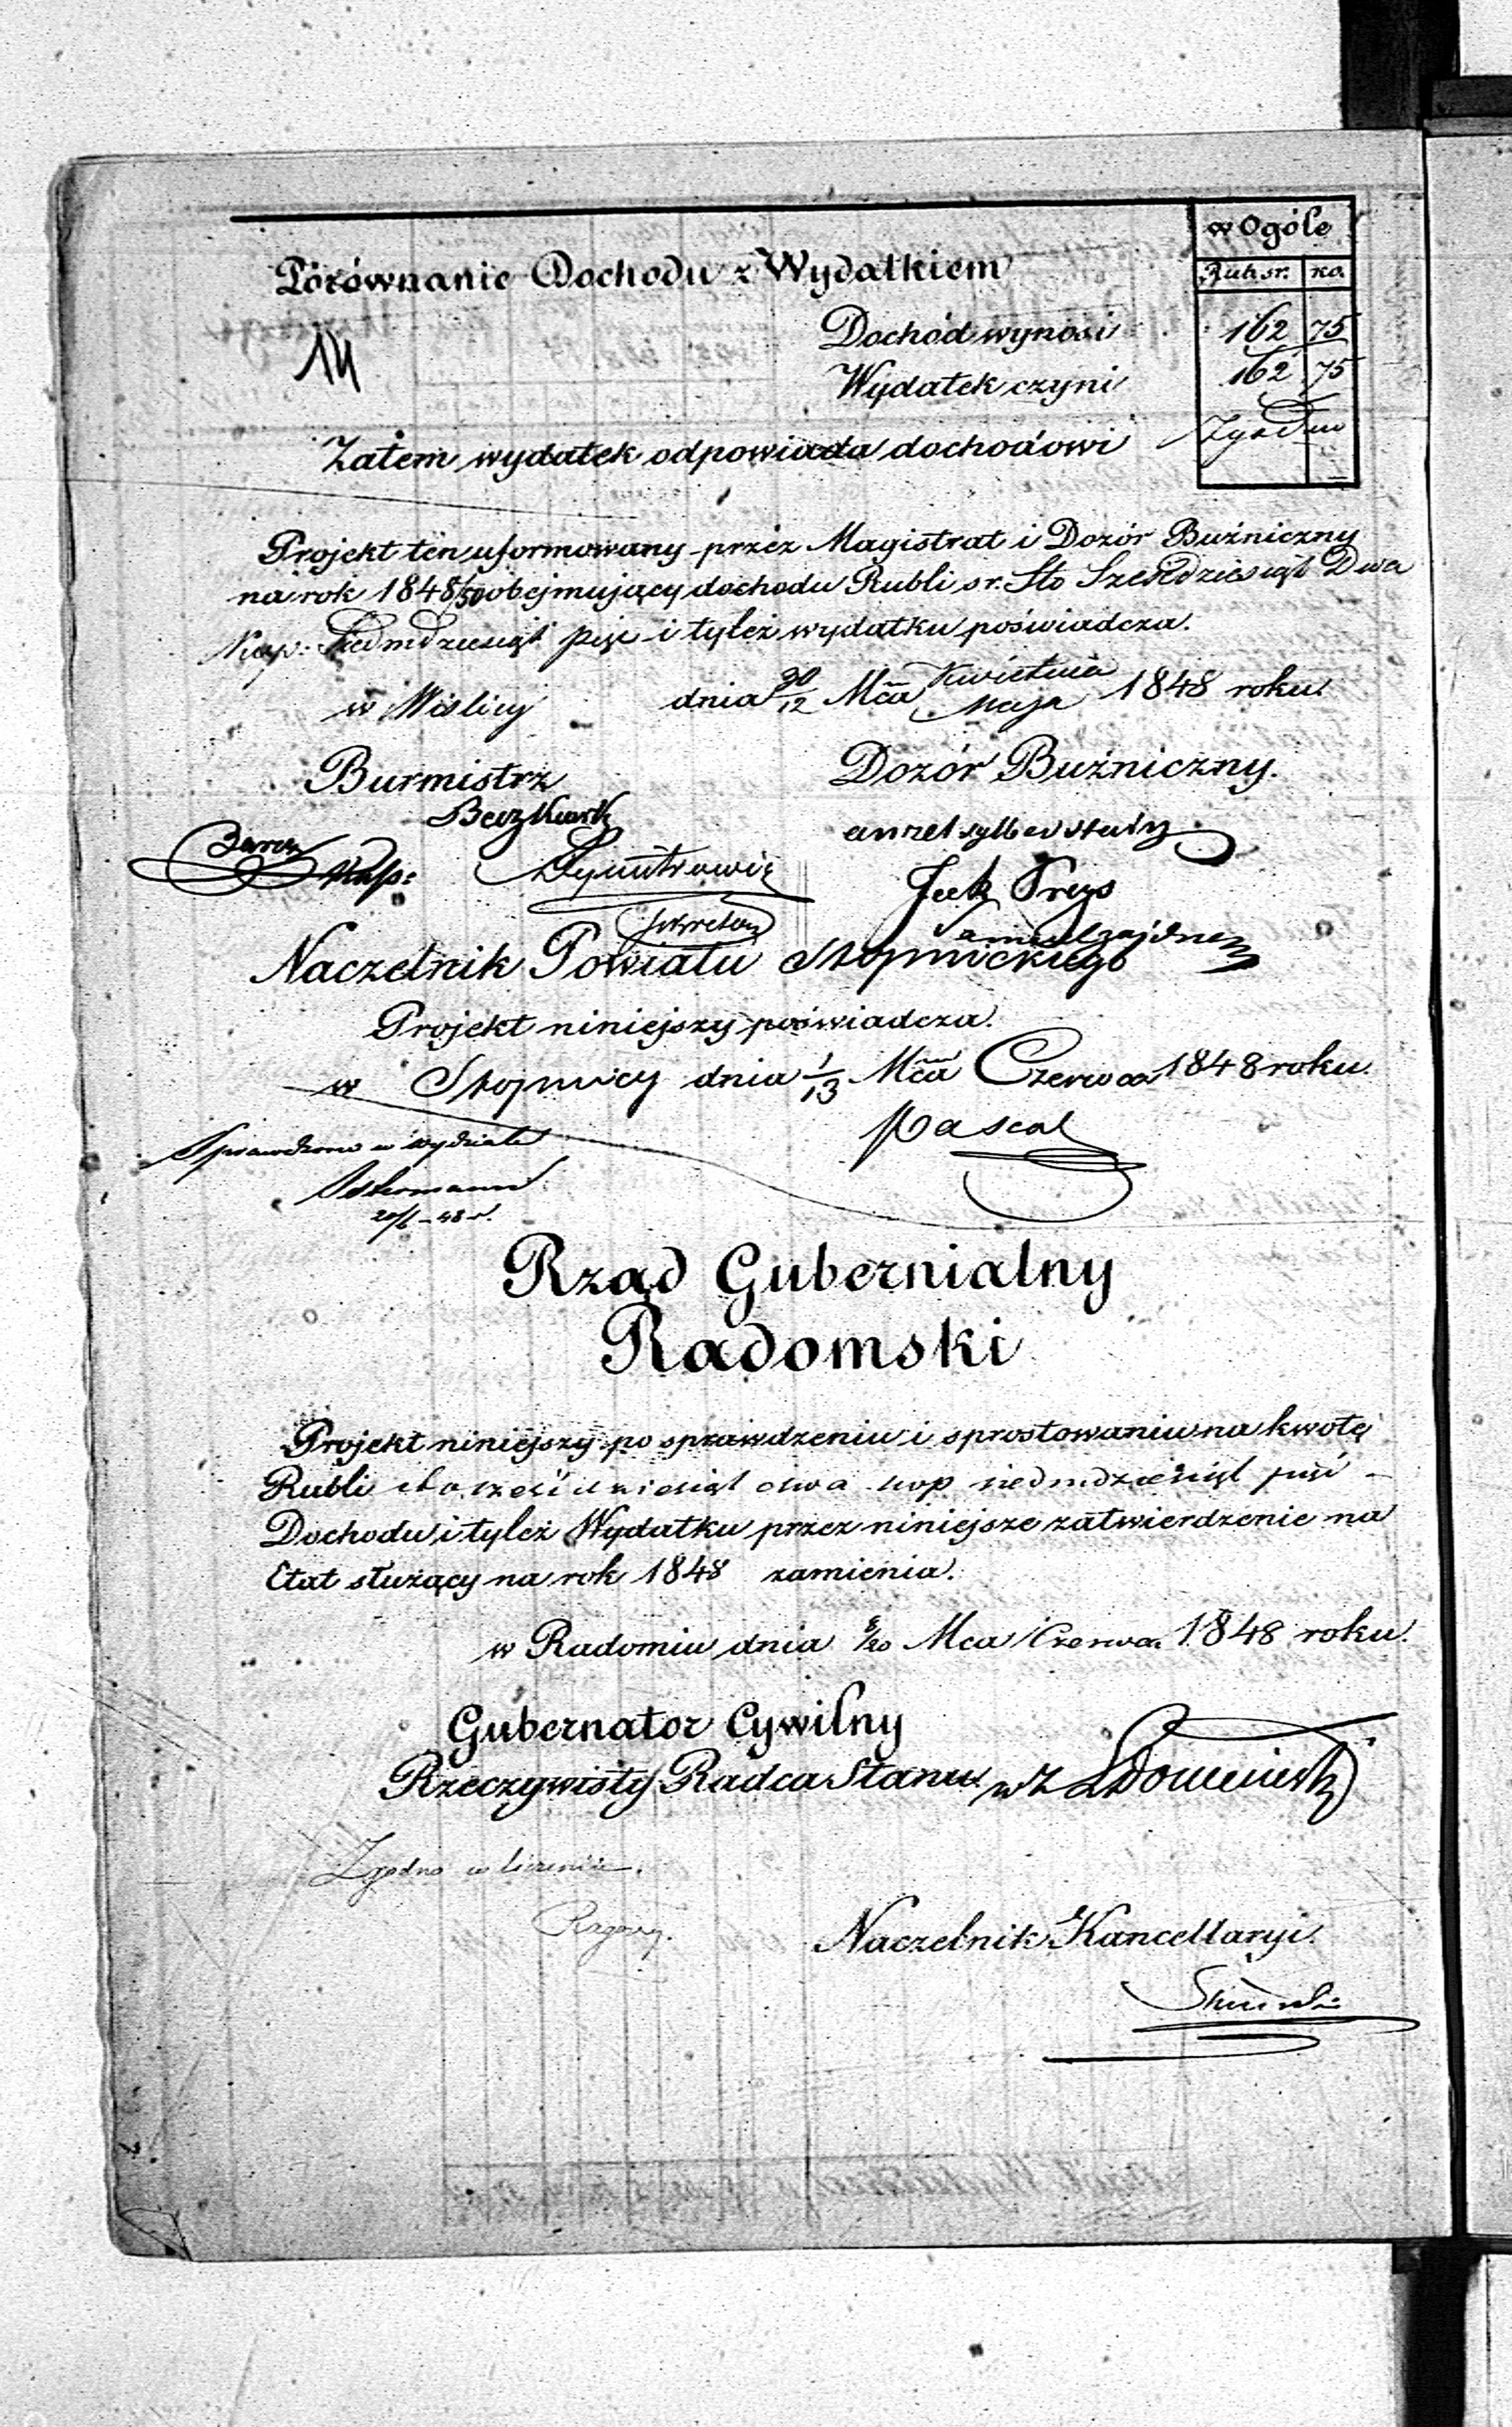 w Ogóle
Rub. sr. ko.
Porównanie Dochodu z Wydatkiem
14
Dochód wynosi 162 75
Wydatek czyni 162 75
Zatem wydatek odpowiada dochodowi Zgodno
Projekt ten uformowany przez Magistrat i Dozór Buźniczny
na rok 1848/50 obejmujący dochodu Rubli sr. Sto Sześćdziesiąt Dwa
Kop: Siedmdziesiąt pięc i tyleż wydatku poświadcza.
w Wislicy dnia 30/12 Mca Kwietnia/Maja 1848 roku.
Burmistrz Dozór Buźniczny.
anzel sylberstain
Kasp:
Jcek Preys
Sekretarz
Naczelnik Powiatu Stopnickiego
Projekt niniejszy poświadcza.
w Stopnicy dnia 1/13 Mca Czerwca 1848 roku
Sprawdzono w wydziale Pascal
20/6 - 48 r.
Rząd Gubernialny
Radomski
Projekt niniejszy po sprawdzeniu i sprostowaniu na kwotę
Rubli sto sześćdziesiąt dwa kop siedmdziesiąt pięć -
Dochodu i tyleż Wydatku przez niniejsze zatwierdzenie na
Etat służący na rok 1848 zamienia.
w Radomiu dnia 8/20 Mca Czerwca 1848 roku.
Gubernator Cywilny
Rzeczywisty Radca Stanu w z
Zgodno w liczeniu.
Naczelnik Kancellaryi.